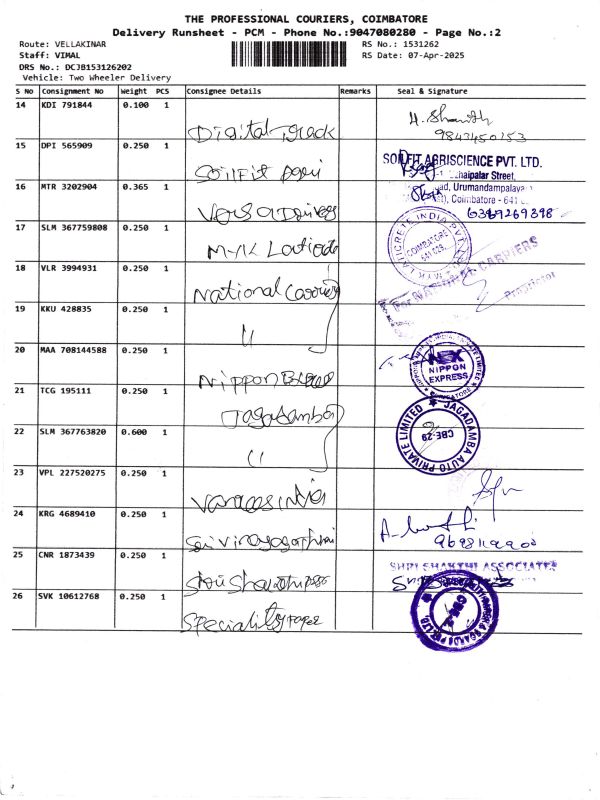 THE PROFESSIONAL COURIERS, COIMBATORE
Delivery Runsheet - PCM - Phone No.:9047080280 - Page No.:2
Route: VELLAKINAR RS No.: 1531262
Staff: VIMAL RS Date: 07-Apr-2025
DRS No.: DCJB153126202
Vehicle: Two Wheeler Delivery
S No Consignment No Weight PCS Consignee Details Remarks Seal & Signature
14 KDI 791844 0.100 1
Digital Track
9843450153
15 DPI 565909 0.250 1
Soilfit Agri
SOILFIT AGRISCIENCE PVT. LTD.
16 MTR 3202904 0.365 1
Urumandampalayam
Coimbatore - 641
6369269398
17 SLM 367759808 0.250 1
COIMBATORE
18 VLR 3994931 0.250 1
National Carriers
For NATIONAL CARRIERS
Proprietor
19 KKU 428835 0.250 1
"
20 MAA 708144588 0.250 1
Nippon Express
NEX
NIPPON
EXPRESS
COIMBATORE
21 TCG 195111 0.250 1
Jagadambal
JAGADAMBA AUTO PRIVATE LIMITED
CBE-29
22 SLM 367763820 0.600 1
"
23 VPL 227520275 0.250 1
24 KRG 4689410 0.250 1
25 CNR 1873439 0.250 1
SHRI SHAKTHI ASSOCIATES
26 SVK 10612768 0.250 1
Speciality Paper